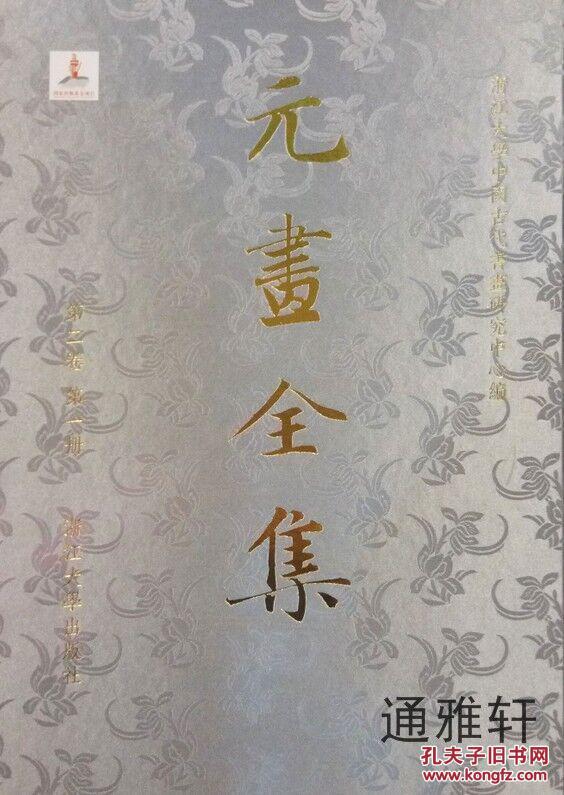 浙江大學中國古代書畫研究中心編
元畫全集
第二卷 第一册
浙江大學出版社
通雅轩
孔夫子旧书网
www.kongfz.com